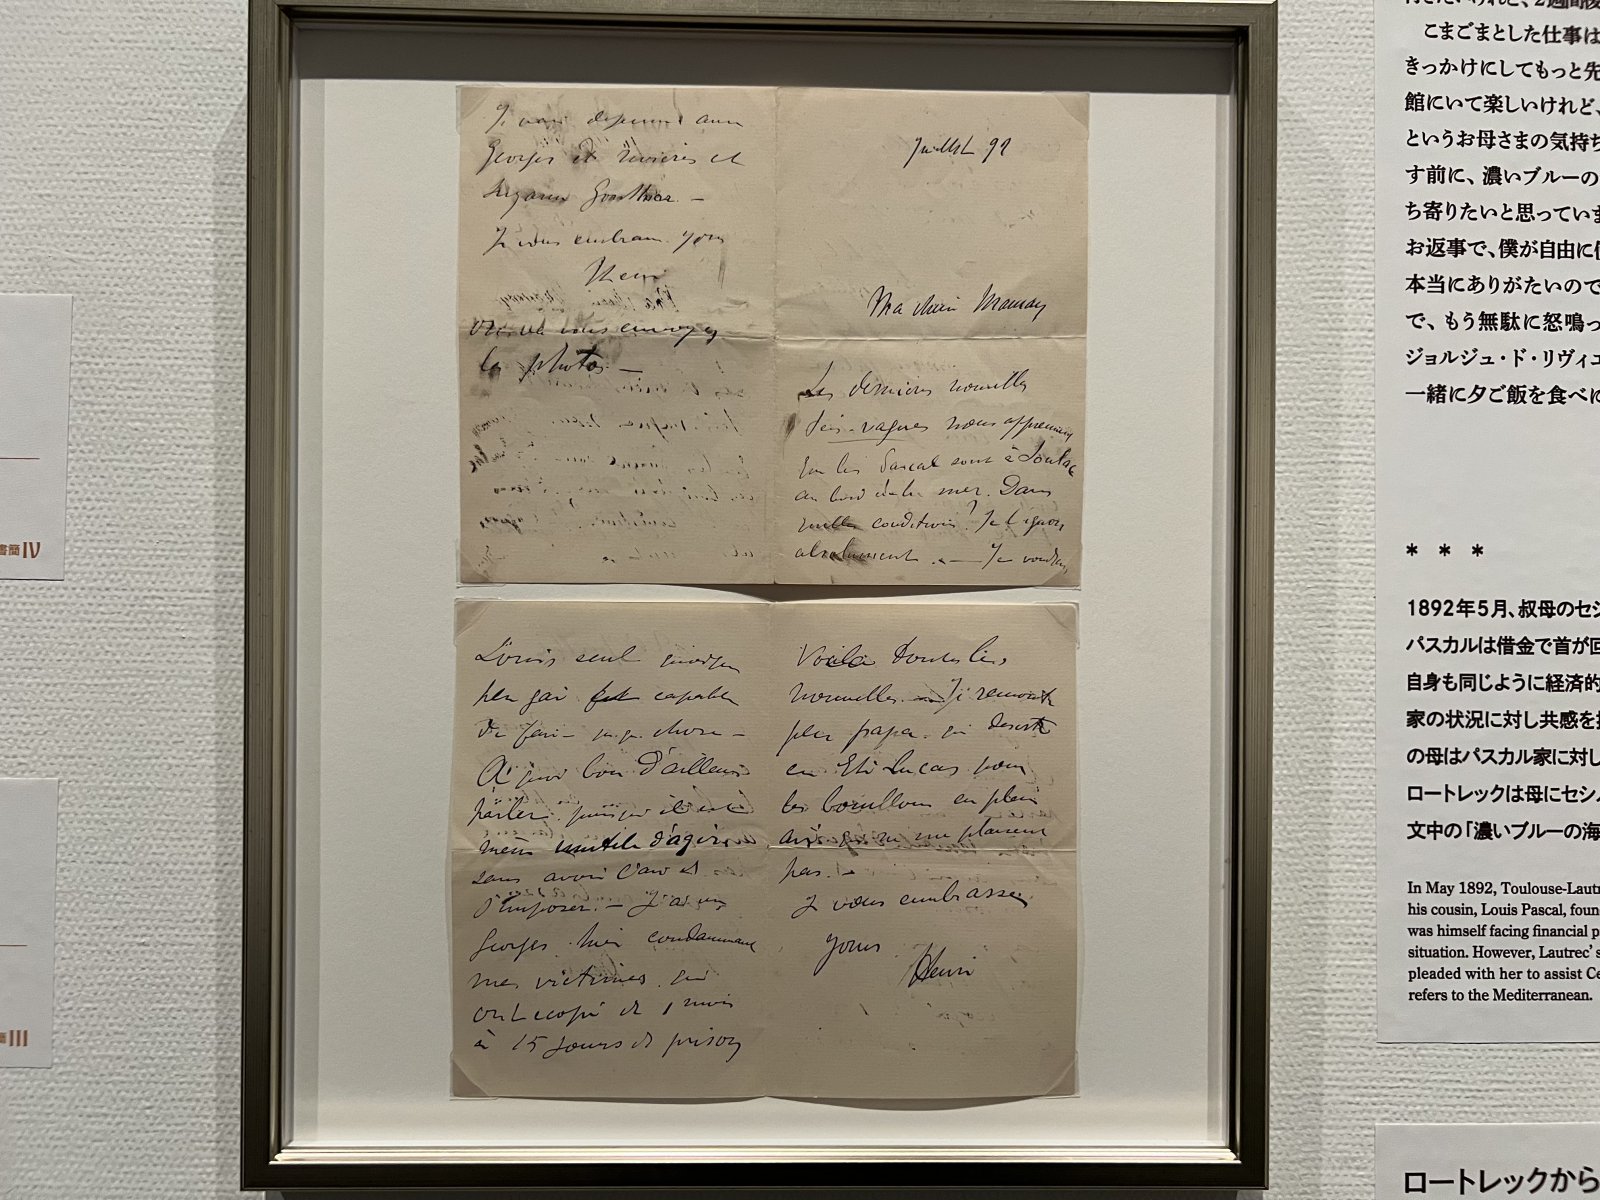 Georges de Rivières et
Suzanne Gonthier. —
Je vous embrasse. yours
Henri
vous envoyez
les photos. —
Juillet 92
Ma chère Maman
Les dernières nouvelles
très-vagues nous apprennent
que les Pascal sont à Soulac
au bord de la mer. Dans
quelles conditions? Je l'ignore
absolument. — Je voudrais
Louis seul quoique
peu gai capable
de faire quque chose —
A quoi bon d'ailleurs
parler puisque il est
même inutile d'agir
sans avoir l'air de
s'imposer. — J'ai vu
Georges hier condamnant
mes victimes qui
ont écopé de 1 mois
à 15 jours de prison
Voilà toutes les
nouvelles. — Je remonte
plus papa qui déserte
les bouillons en plein
air qui ne me plaisent
pas. —
Je vous embrasse
yours
Henri
書簡IV
III
こまごまとした仕事は
きっかけにしてもっと先
館にいて楽しいけれど、
というお母さまの気持ち
す前に、濃いブルーの
ち寄りたいと思っていま
お返事で、僕が自由に
本当にありがたいので
で、もう無駄に怒鳴っ
ジョルジュ・ド・リヴィエ
一緒に夕ご飯を食べに
* * *
1892年5月、叔母のセシ
パスカルは借金で首が回
自身も同じように経済的
家の状況に対し共感を
の母はパスカル家に対し
ロートレックは母にセシ
文中の「濃いブルーの海
In May 1892, Toulouse-Lautre
his cousin, Louis Pascal, foun
was himself facing financial p
situation. However, Lautrec's
pleaded with her to assist Ce
refers to the Mediterranean.
ロートレックから